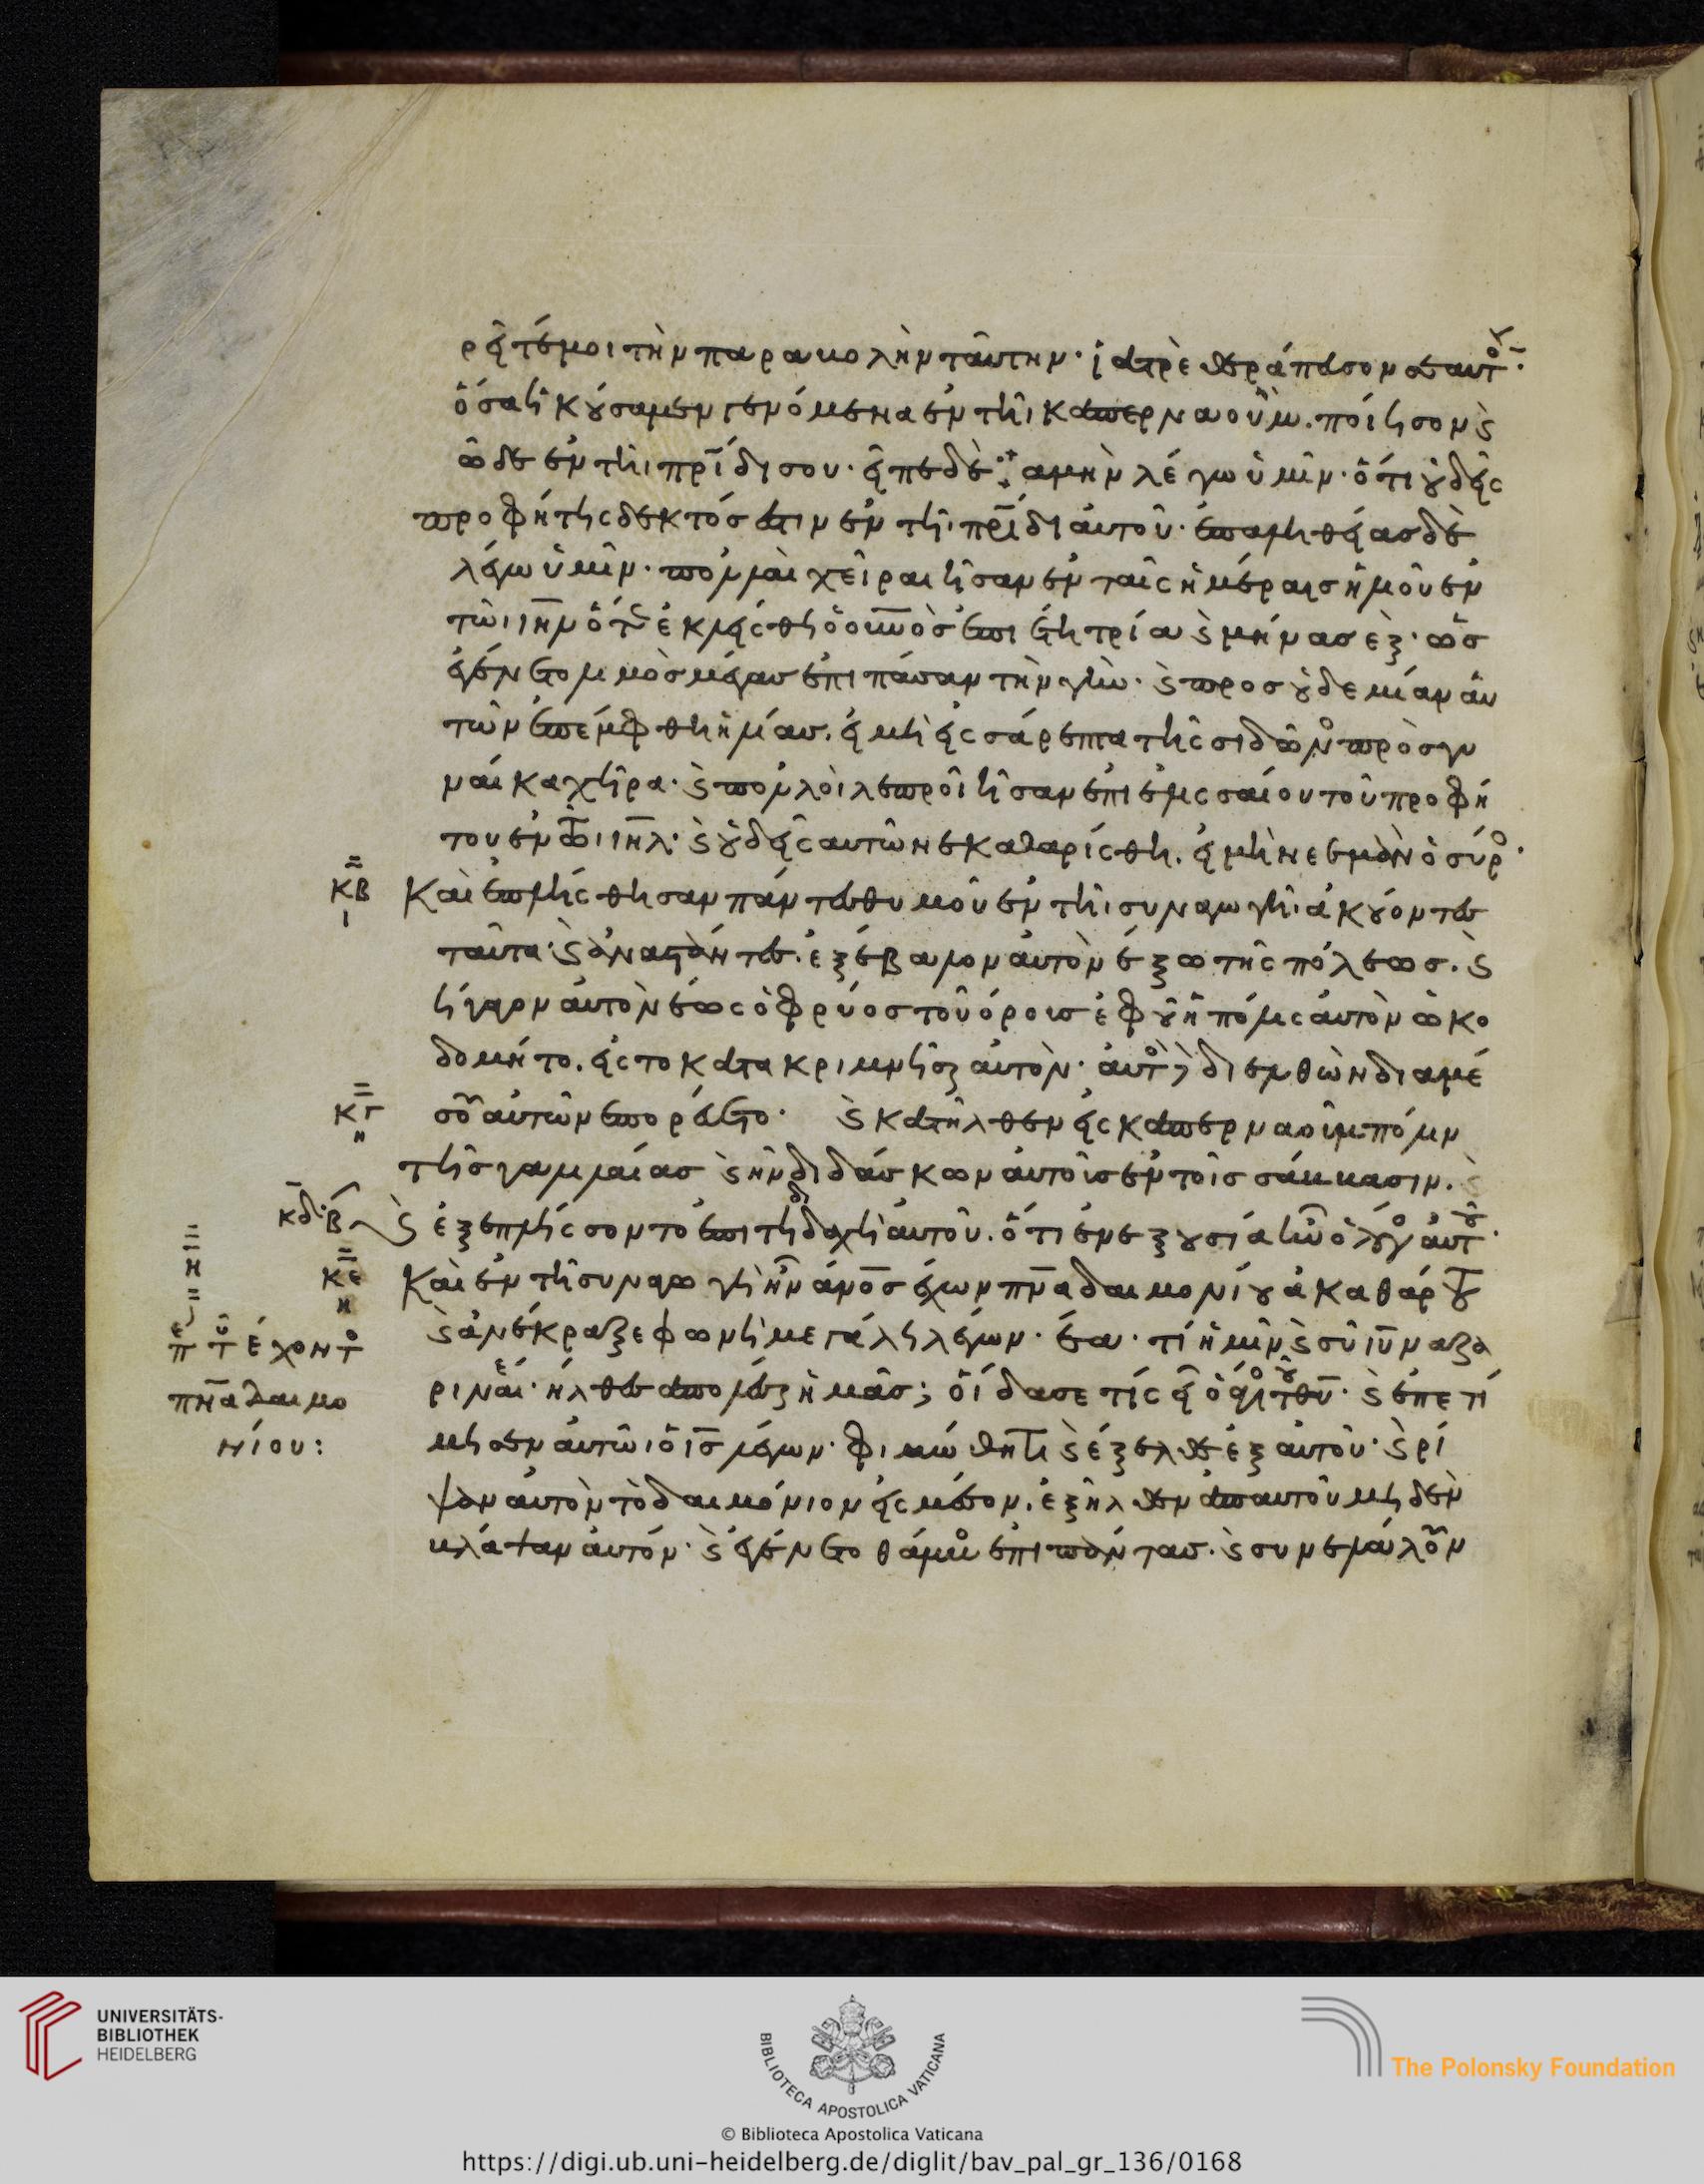 ρεῖτέ μοι τὴν παραβολὴν ταύτην· ἰατρὲ θεράπευσον σεαυτόν·
ὅσα ἠκούσαμεν γενόμενα ἐν τῆι καπερναούμ. ποίησον καὶ
ὧδε ἐν τῆι πρ̅ίδι σου· εἶπε δὲ· ἀμὴν λέγω ὑμῖν· ὅτι οὐδεὶς
προφήτης δεκτός ἐστιν ἐν τῆι πρ̅ίδι αὐτοῦ· ἐπαληθείας δὲ
λέγω ὑμῖν· πολλαὶ χεῖραι ἦσαν ἐν ταῖς ἡμέραις ἡλιοῦ ἐν
τῶι ιη̅λ ὅτε ἐκλείσθη ὁ ου̅νὸς ἐπι ἔτη τρία καὶ μήνας ἐξ· ὡς
ἐγένετο λιμὸς μέγας ἐπι πάσαν τὴν γῆν· καὶ προς οὐδεμίαν αὐ
τῶν ἐπέμφθη ἡλίας. εἰ μὴ εἰς σάρεπτα τῆς σιδῶνος πρὸς γυ
ναίκα χῆρα· καὶ πολλοὶ λεπροὶ ἦσαν ἐπι ἐλισσαίου τοῦ προφή
του ἐν τῶι ιη̅λ· καὶ οὐδεὶς αὐτῶν ἐκαθαρίσθη. εἰ μὴ νεεμὰν ὁ σύρος·
κβ ι Καὶ ἐπλήσθησαν πάντες θυμοῦ ἐν τῆι συναγωγῆ· ἀκούοντες
ταῦτα· καὶ ἀναστάντες. ἐξέβαλον αὐτὸν ἔξω τῆς πόλεως. καὶ
ἤγαγον αὐτὸν ἕως ὀφρύος τοῦ όρους ἐφ οὗ ἡ πόλις αὐτῶν ὠκο
δομήτο. εἰς το κατακριμνῆσαι αὐτὸν· αὐτὸς δὲ διελθὼν δια μέ
σου αὐτῶν ἐπορεύετο· καὶ κατῆλθεν εἰς καπερναοὺμ πόλιν
κγ η
τῆς γαλιλαίας καὶ ἦν διδάσκων αὐτοῖς ἐν τοῖς σάββασιν. καὶ
κδ· β καὶ ἐξεπλήσσοντο ἐπι τῆ διδαχῆ αὐτοῦ. ὅτι ἐν ἐξουσία ἦν ὁ λόγος αὐτοῦ·
κε η Καὶ ἐν τῆ συναγωγῆ ἦν ἄνο̅ς ἔχων πν̅α δαιμονίου ἀκαθάρτου
καὶ ἀνέκραξε φωνῆ μεγάλη λέγων· ἔα· τί ἡμῖν καὶ σοῦ ιυ̅ ναζα
ρινέ· ἦλθες ἀπολέσαι ἡμᾶς; οἶδα σε τίς εἶ ὁ ἅγιος τοῦ θυ̅· καὶ ἐπετί
μησεν αὐτῶι ὁ ισ̅ λέγων· φιμώθητι καὶ ἔξελθε ἐξ αὐτοῦ· καὶ ρί
ψαν αὐτὸν τὸ δαιμόνιον εἰς μέσον. ἐξῆλθεν ἀπ αὐτοῦ μηδὲν
βλάψαν αὐτόν· καὶ ἐγένετο θάμβος ἐπι πάντας. καὶ συνελάλουν
η
πε τοῦ ἔχοντος
πν̅α δαιμο
νίου:
UNIVERSITÄTS-
BIBLIOTHEK
HEIDELBERG
BIBLIOTECA APOSTOLICA VATICANA
The Polonsky Foundation
© Biblioteca Apostolica Vaticana
https://digi.ub.uni-heidelberg.de/diglit/bav_pal_gr_136/0168